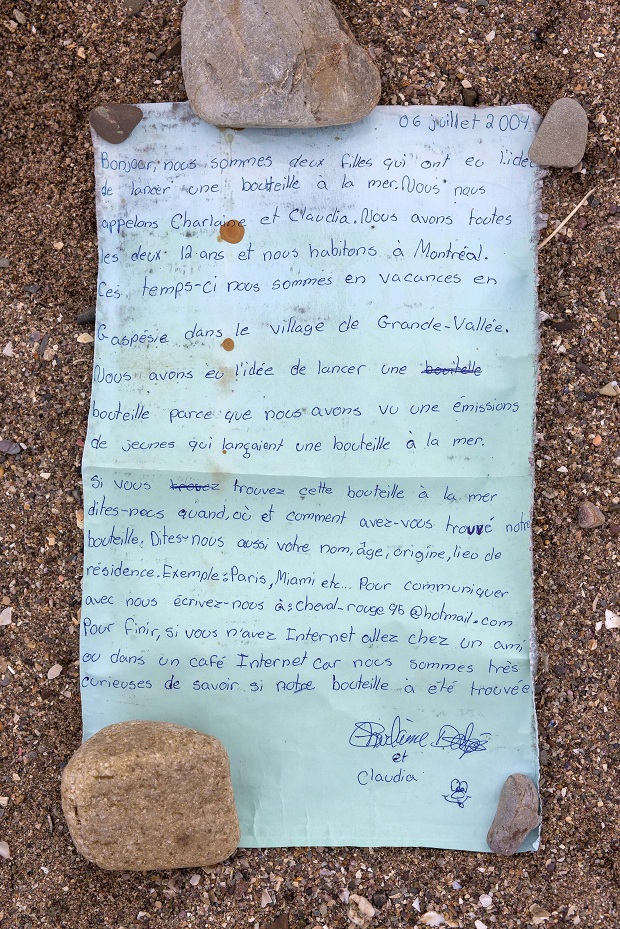 06 juillet 2004
Bonjour, nous sommes deux filles qui ont eu l'idée
de lancer une bouteille à la mer. Nous nous
appelons Charlaine et Claudia. Nous avons toutes
les deux 12 ans et nous habitons à Montréal.
Ces temps-ci nous sommes en vacances en
Gaspésie dans le village de Grande-Vallée.
Nous avons eu l'idée de lancer une bouitelle
bouteille parce que nous avons vu une émissions
de jeunes qui lançaient une bouteille à la mer.
Si vous trouvez trouvez cette bouteille à la mer
dites-nous quand, où et comment avez-vous trouvé notre
bouteille. Dites-nous aussi votre nom, âge, origine, lieu de
résidence. Exemple: Paris, Miami etc... Pour communiquer
avec nous écrivez-nous à: cheval-rouge95@hotmail.com
Pour finir, si vous n'avez Internet allez chez un ami
ou dans un café Internet car nous sommes très
curieuses de savoir si notre bouteille à été trouvée
Charlaine
et
Claudia